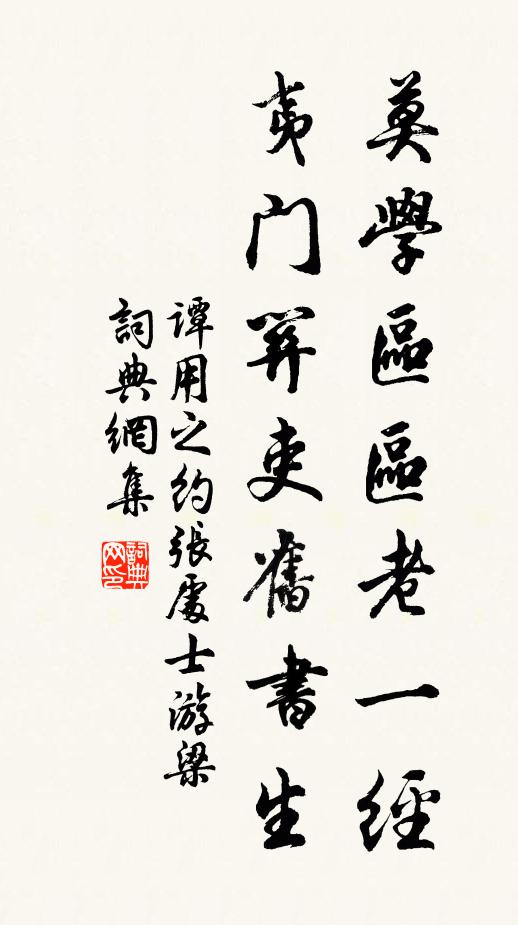 莫學區區老一經
夷門關吏舊書生
譚用之約張處士游梁
詞典網集
詞典网印